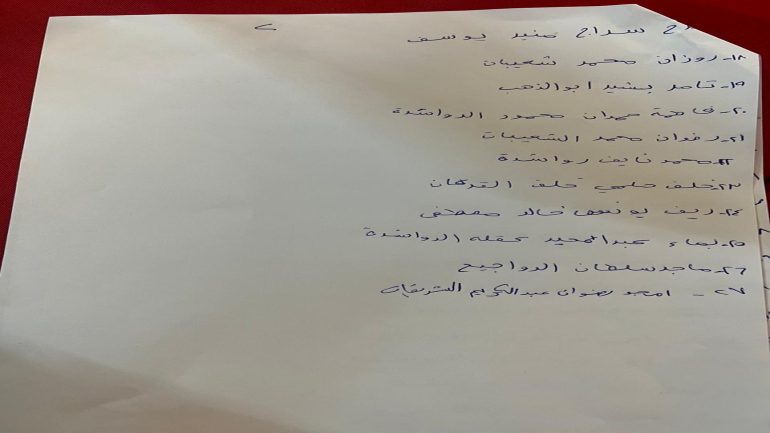 ٢
سراج منير يوسف
١٨- روزان محمد شعيبان
١٩- تامر بشير ابو الذهب
٢٠- فاطمة حمدان محمود الرواشدة
٢١- رضوان محمد الشعيبات
٢٢- محمد نايف رواشدة
٢٣- خلف حلمي خلف القرعان
٢٤- ريف يونس خالد مصطفى
٢٥- بهاء عبدالمجيد عقله الرواشدة
٢٦- ماجد سلطان الرواجيح
٢٧- امجد رضوان عبدالكريم الشريقات